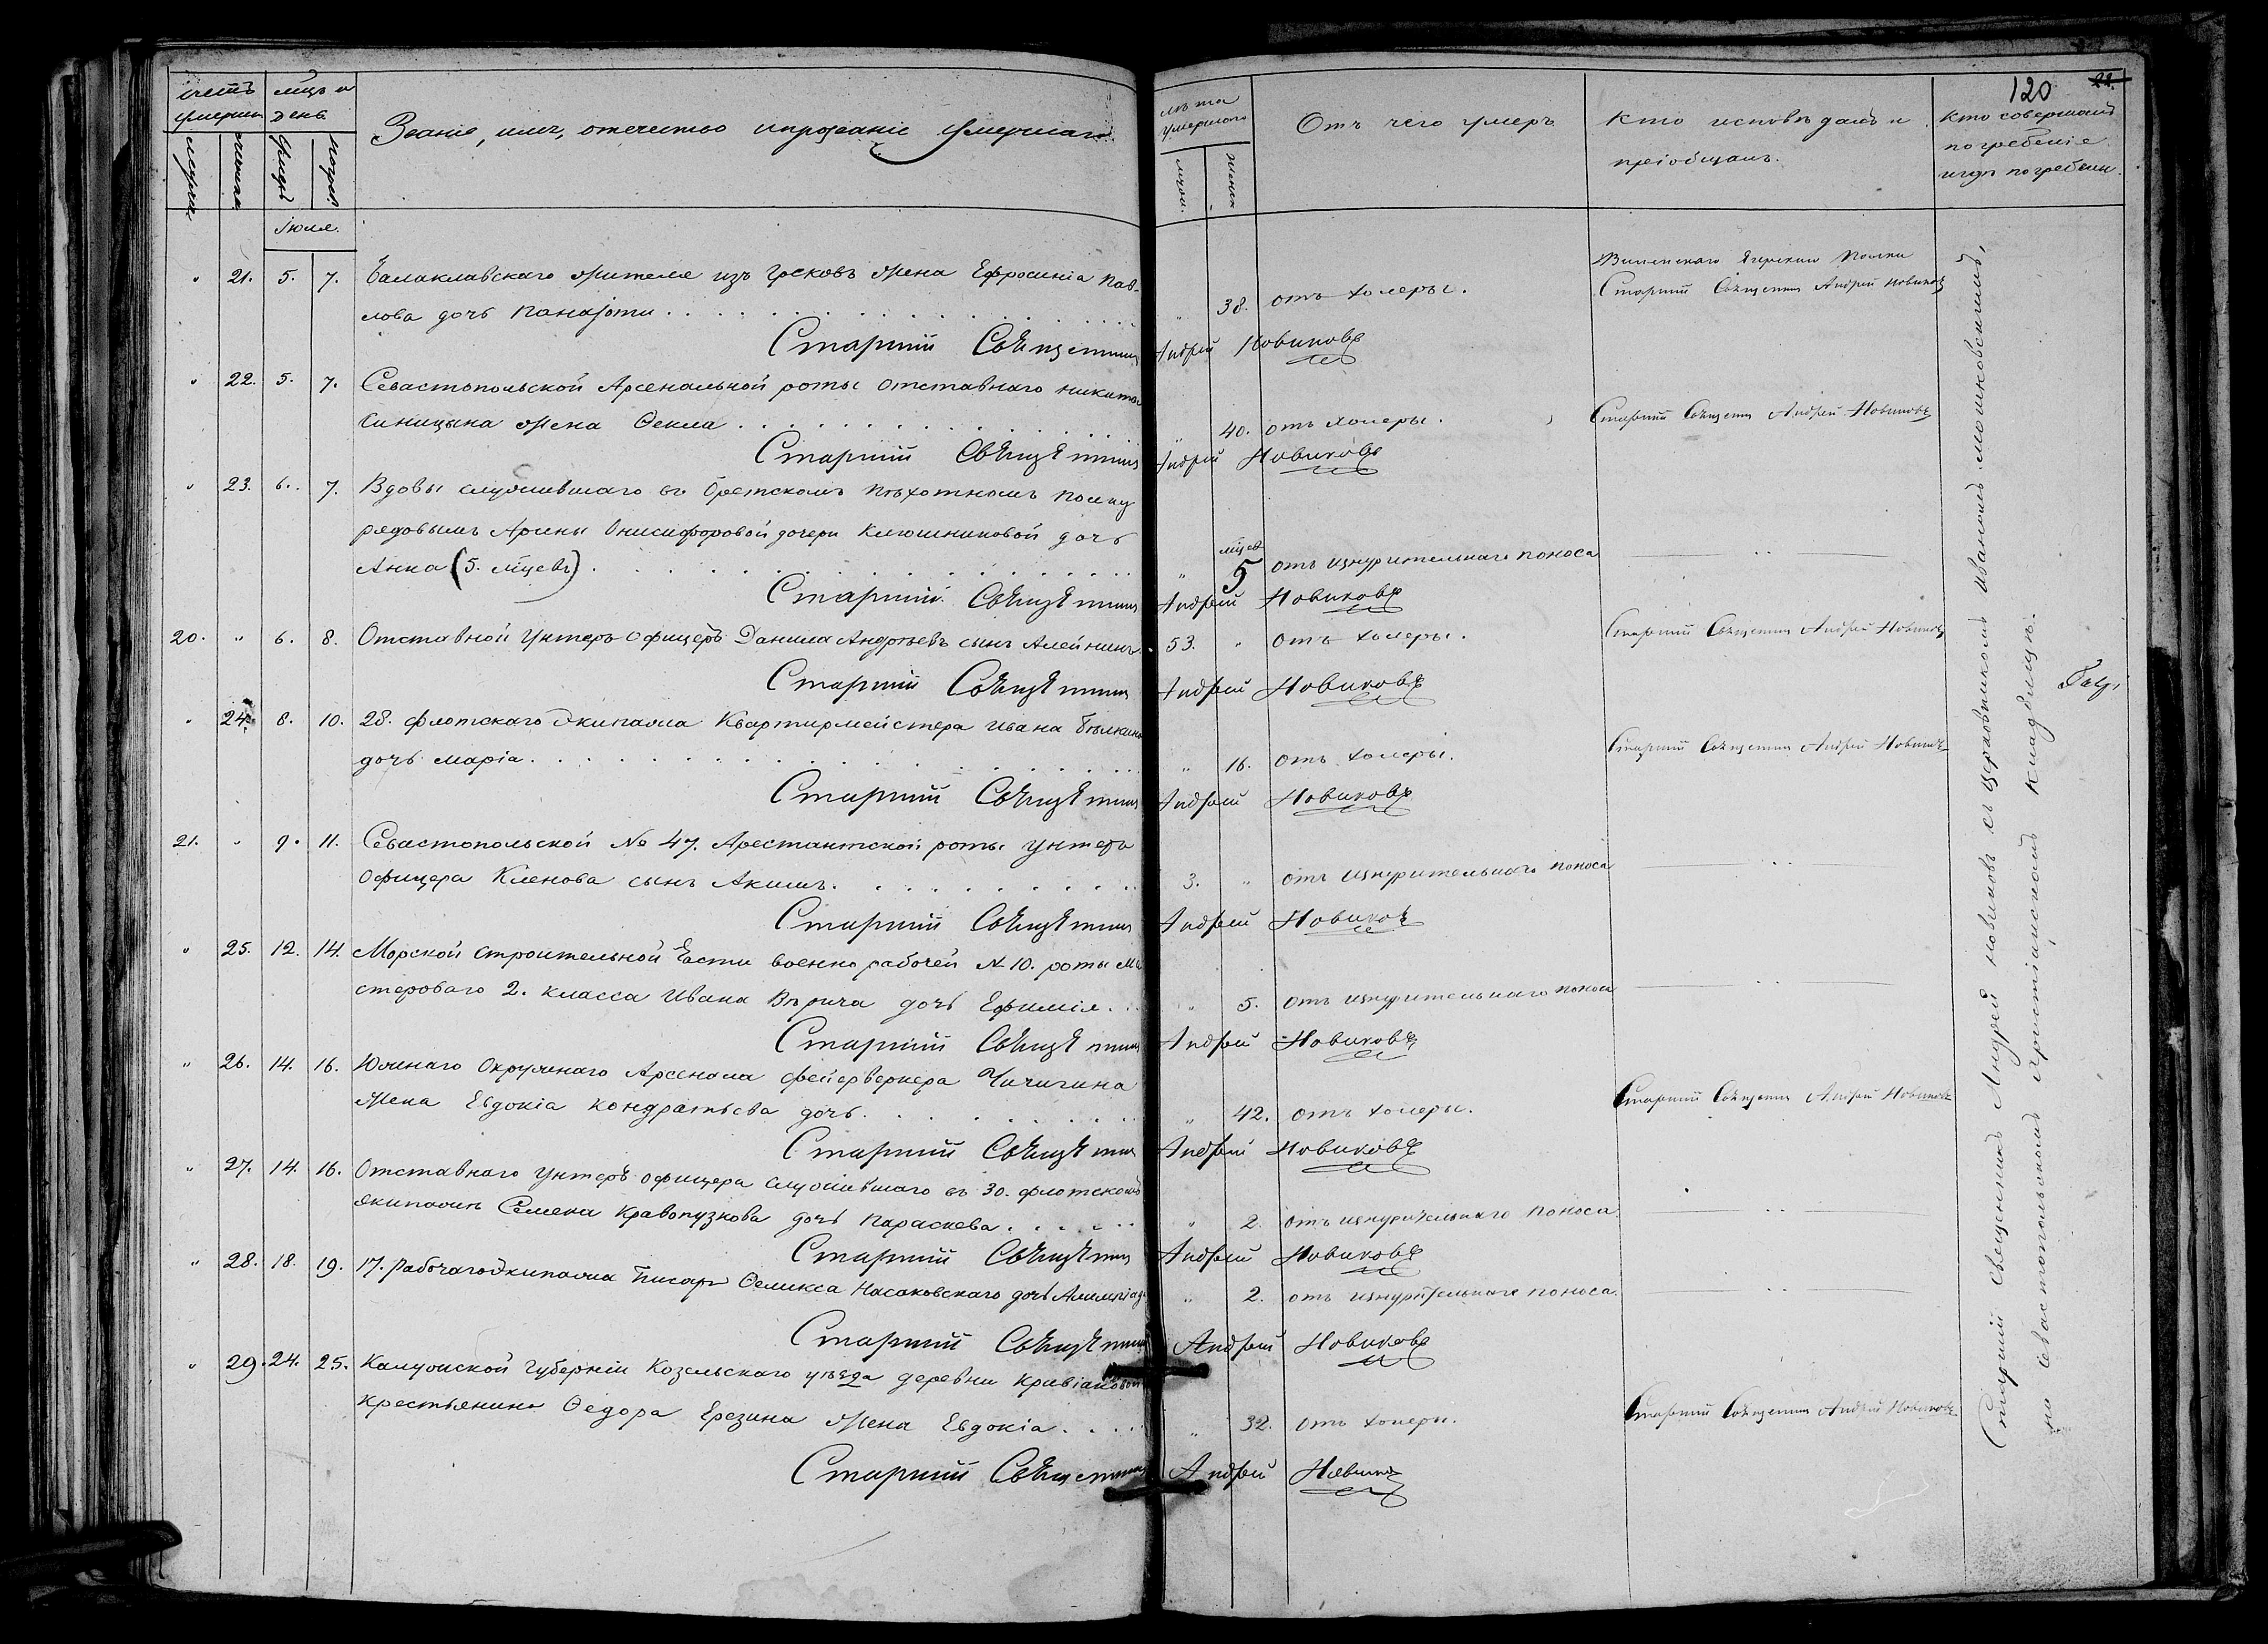 120
счетъ умершихъ
мцъ и день
Званіе, имя, отечество и прозваніе умершаго.
лѣта умершаго
Отъ чего умеръ
Кто исповѣдалъ и пріобщалъ.
Кто совершалъ погребеніе и гдѣ погребены.
Іюля.
21. 5. 7. Балаклавскаго жителя изъ Грековъ жена Ефросинія Пав-
лова дочь Панаіоти 38. отъ холеры.
Виленскаго Егерскаго Полка
Старшій Священникъ Андрей Новиковъ
Старшій Священникъ Андрей Новиковъ
22. 5. 7. Севастопольской Арсенальной роты отставнаго Никиты
Синицына жена Ѳекла 40. отъ холеры. Старшій Священникъ Андрей Новиковъ
Старшій Священникъ Андрей Новиковъ
23. 6. 7. Вдовы служившаго въ Брестскомъ пѣхотномъ полку
рядовымъ Арины Онисифоровой дочери Клюшниковой дочь
Анна (5. мцевъ) мцев 5 отъ изнурительнаго поноса
Старшій Священникъ Андрей Новиковъ
20. 6. 8. Отставной Унтеръ Офицеръ Данила Андреевъ сынъ Алейнинъ 53. отъ холеры. Старшій Священникъ Андрей Новиковъ
Старшій Священникъ Андрей Новиковъ
24. 8. 10. 28. флотскаго Экипажа Квартирмейстера Ивана Бѣлкина
дочь Марія 16. отъ холеры. Старшій Священникъ Андрей Новиковъ
Старшій Священникъ Андрей Новиковъ
21. 9. 11. Севастопольской № 47. Арестантской роты Унтеръ
Офицера Кленова сынъ Акимъ. 3. отъ изнурительнаго поноса
Старшій Священникъ Андрей Новиковъ
25. 12. 14. Морской Строительной Части военно рабочей № 10. роты Ма
стероваго 2. класса Ивана дочь Ефимія. 5. отъ изнурительнаго поноса
Старшій Священникъ Андрей Новиковъ
26. 14. 16. Южнаго Окружнаго Арсенала фейерверкера Чичигина
жена Евдокія Кондратьева дочь. 42. отъ холеры. Старшій Священникъ Андрей Новиковъ
Старшій Священникъ Андрей Новиковъ
27. 14. 16. Отставнаго Унтеръ офицера служившаго въ 30. флотскомъ
экипажѣ Семена Кравопузкова дочь Параскева. 2. отъ изнурительнаго поноса.
Старшій Священникъ Андрей Новиковъ
28. 18. 19. 17. Рабочаго Экипажа Писаря Ѳеликса Насаковскаго дочь 2. отъ изнурительнаго поноса.
Старшій Священникъ Андрей Новиковъ
29. 24. 25. Калужской Губерніи Козельскаго уѣзда деревни
Крестьянина Ѳедора Ерезина жена Евдокія. 32. отъ холеры. Старшій Священникъ Андрей Новиковъ
Старшій Священникъ Андрей Новиковъ
Старшій Священникъ Андрей Новиковъ съ церковникомъ Иваномъ
на Севастопольскомъ христіанскомъ кладбищѣ.